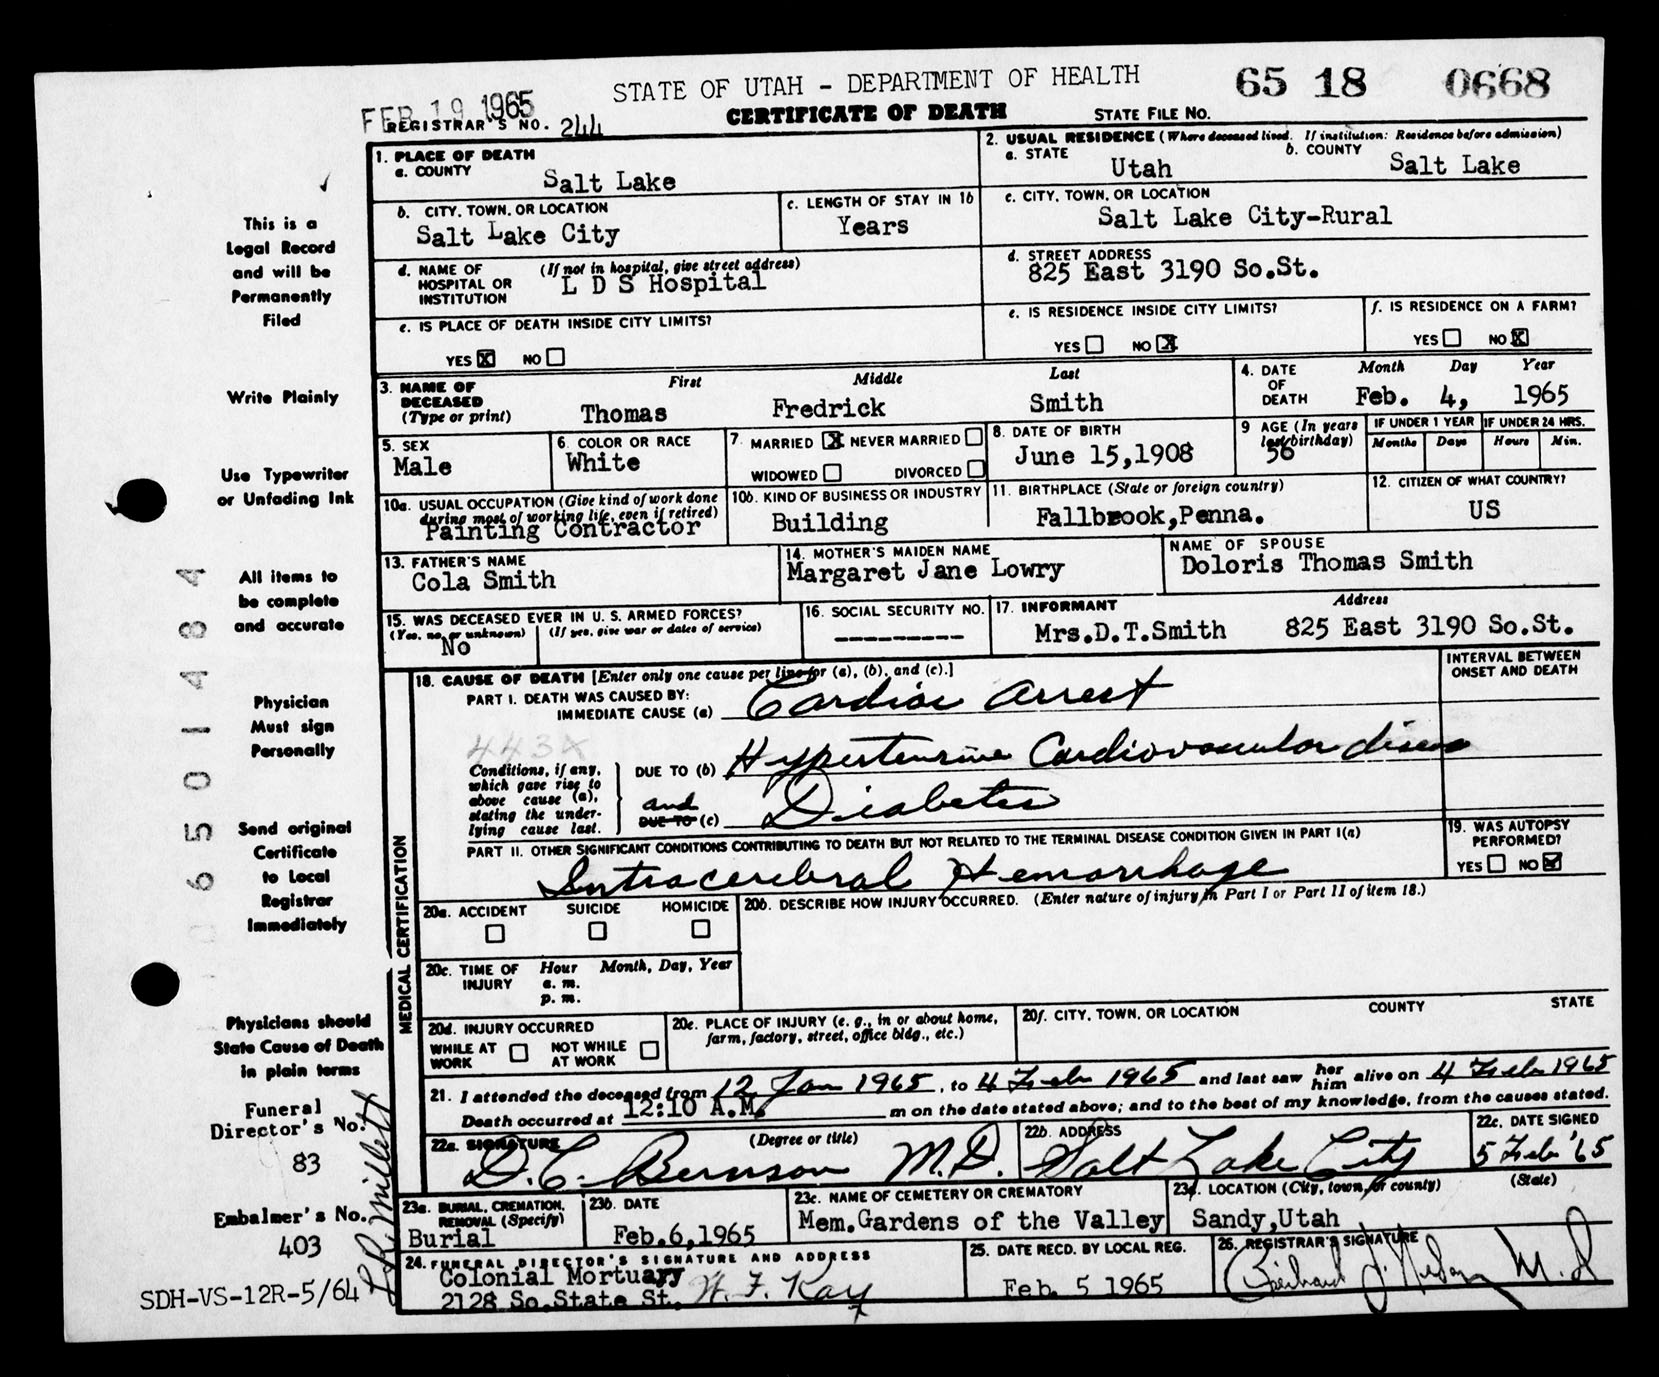 STATE OF UTAH - DEPARTMENT OF HEALTH
65 18 0668
FEB 19 1965
CERTIFICATE OF DEATH
STATE FILE No.
REGISTRAR'S NO. 244
1. PLACE OF DEATH
a. COUNTY
Salt Lake
2. USUAL RESIDENCE (Where deceased lived. If institution: Residence before admission)
a. STATE
Utah
b. COUNTY
Salt Lake
b. CITY, TOWN, OR LOCATION
Salt Lake City
c. LENGTH OF STAY IN 1b
Years
c. CITY, TOWN, OR LOCATION
Salt Lake City-Rural
d. NAME OF HOSPITAL OR INSTITUTION
(If not in hospital, give street address)
L D S Hospital
d. STREET ADDRESS
825 East 3190 So.St.
e. IS PLACE OF DEATH INSIDE CITY LIMITS?
YES X NO
e. IS RESIDENCE INSIDE CITY LIMITS?
YES NO X
f. IS RESIDENCE ON A FARM?
YES NO X
3. NAME OF DECEASED
(Type or print)
First Middle Last
Thomas Fredrick Smith
4. DATE OF DEATH
Month Day Year
Feb. 4, 1965
5. SEX
Male
6. COLOR OR RACE
White
7. MARRIED X NEVER MARRIED
WIDOWED DIVORCED
8. DATE OF BIRTH
June 15,1908
9 AGE (In years last birthday)
56
IF UNDER 1 YEAR
Months Days
IF UNDER 24 HRS.
Hours Min.
10a. USUAL OCCUPATION (Give kind of work done during most of working life, even if retired)
Painting Contractor
10b. KIND OF BUSINESS OR INDUSTRY
Building
11. BIRTHPLACE (State or foreign country)
Fallbrook,Penna.
12. CITIZEN OF WHAT COUNTRY?
US
13. FATHER'S NAME
Cola Smith
14. MOTHER'S MAIDEN NAME
Margaret Jane Lowry
NAME OF SPOUSE
Doloris Thomas Smith
15. WAS DECEASED EVER IN U. S. ARMED FORCES?
(Yes, no, or unknown) (If yes, give war or dates of service)
No
16. SOCIAL SECURITY NO.
---------
17. INFORMANT
Mrs.D.T.Smith
Address
825 East 3190 So.St.
MEDICAL CERTIFICATION
18. CAUSE OF DEATH [Enter only one cause per line for (a), (b), and (c).]
INTERVAL BETWEEN ONSET AND DEATH
PART I. DEATH WAS CAUSED BY:
IMMEDIATE CAUSE (a) Cardiac arrest
443X
Conditions, if any, which gave rise to above cause (a), stating the underlying cause last.
DUE TO (b) Hypertensive Cardiovascular disease
and
DUE TO (c) Diabetes
PART II. OTHER SIGNIFICANT CONDITIONS CONTRIBUTING TO DEATH BUT NOT RELATED TO THE TERMINAL DISEASE CONDITION GIVEN IN PART I(a)
Intracerebral Hemorrhage
19. WAS AUTOPSY PERFORMED?
YES NO X
20a. ACCIDENT SUICIDE HOMICIDE
20b. DESCRIBE HOW INJURY OCCURRED. (Enter nature of injury in Part I or Part II of item 18.)
20c. TIME OF INJURY
Hour Month, Day, Year
a. m.
p. m.
20d. INJURY OCCURRED
WHILE AT WORK NOT WHILE AT WORK
20e. PLACE OF INJURY (e. g., in or about home, farm, factory, street, office bldg., etc.)
20f. CITY, TOWN, OR LOCATION COUNTY STATE
21. I attended the deceased from 12 Jan 1965, to 4 Feb 1965 and last saw her him alive on 4 Feb 1965
Death occurred at 12:10 A.M. m on the date stated above; and to the best of my knowledge, from the causes stated.
22a. SIGNATURE (Degree or title)
D. C. Bernson M.D.
22b. ADDRESS
Salt Lake City
22c. DATE SIGNED
5 Feb '65
23a. BURIAL, CREMATION, REMOVAL (Specify)
Burial
23b. DATE
Feb.6,1965
23c. NAME OF CEMETERY OR CREMATORY
Mem.Gardens of the Valley
23d. LOCATION (City, town, or county) (State)
Sandy,Utah
24. FUNERAL DIRECTOR'S SIGNATURE AND ADDRESS
Colonial Mortuary
2128 So.State St. W. F. Kay
25. DATE RECD. BY LOCAL REG.
Feb. 5 1965
26. REGISTRAR'S SIGNATURE
M.D
This is a
Legal Record
and will be
Permanently
Filed
Write Plainly
Use Typewriter
or Unfading Ink
All items to
be complete
and accurate
Physician
Must sign
Personally
Send original
Certificate
to Local
Registrar
Immediately
Physicians should
State Cause of Death
in plain terms
Funeral
Director's No.
83
Embalmer's No.
403
SDH-VS-12R-5/64
L.R. Millett
0650148 4